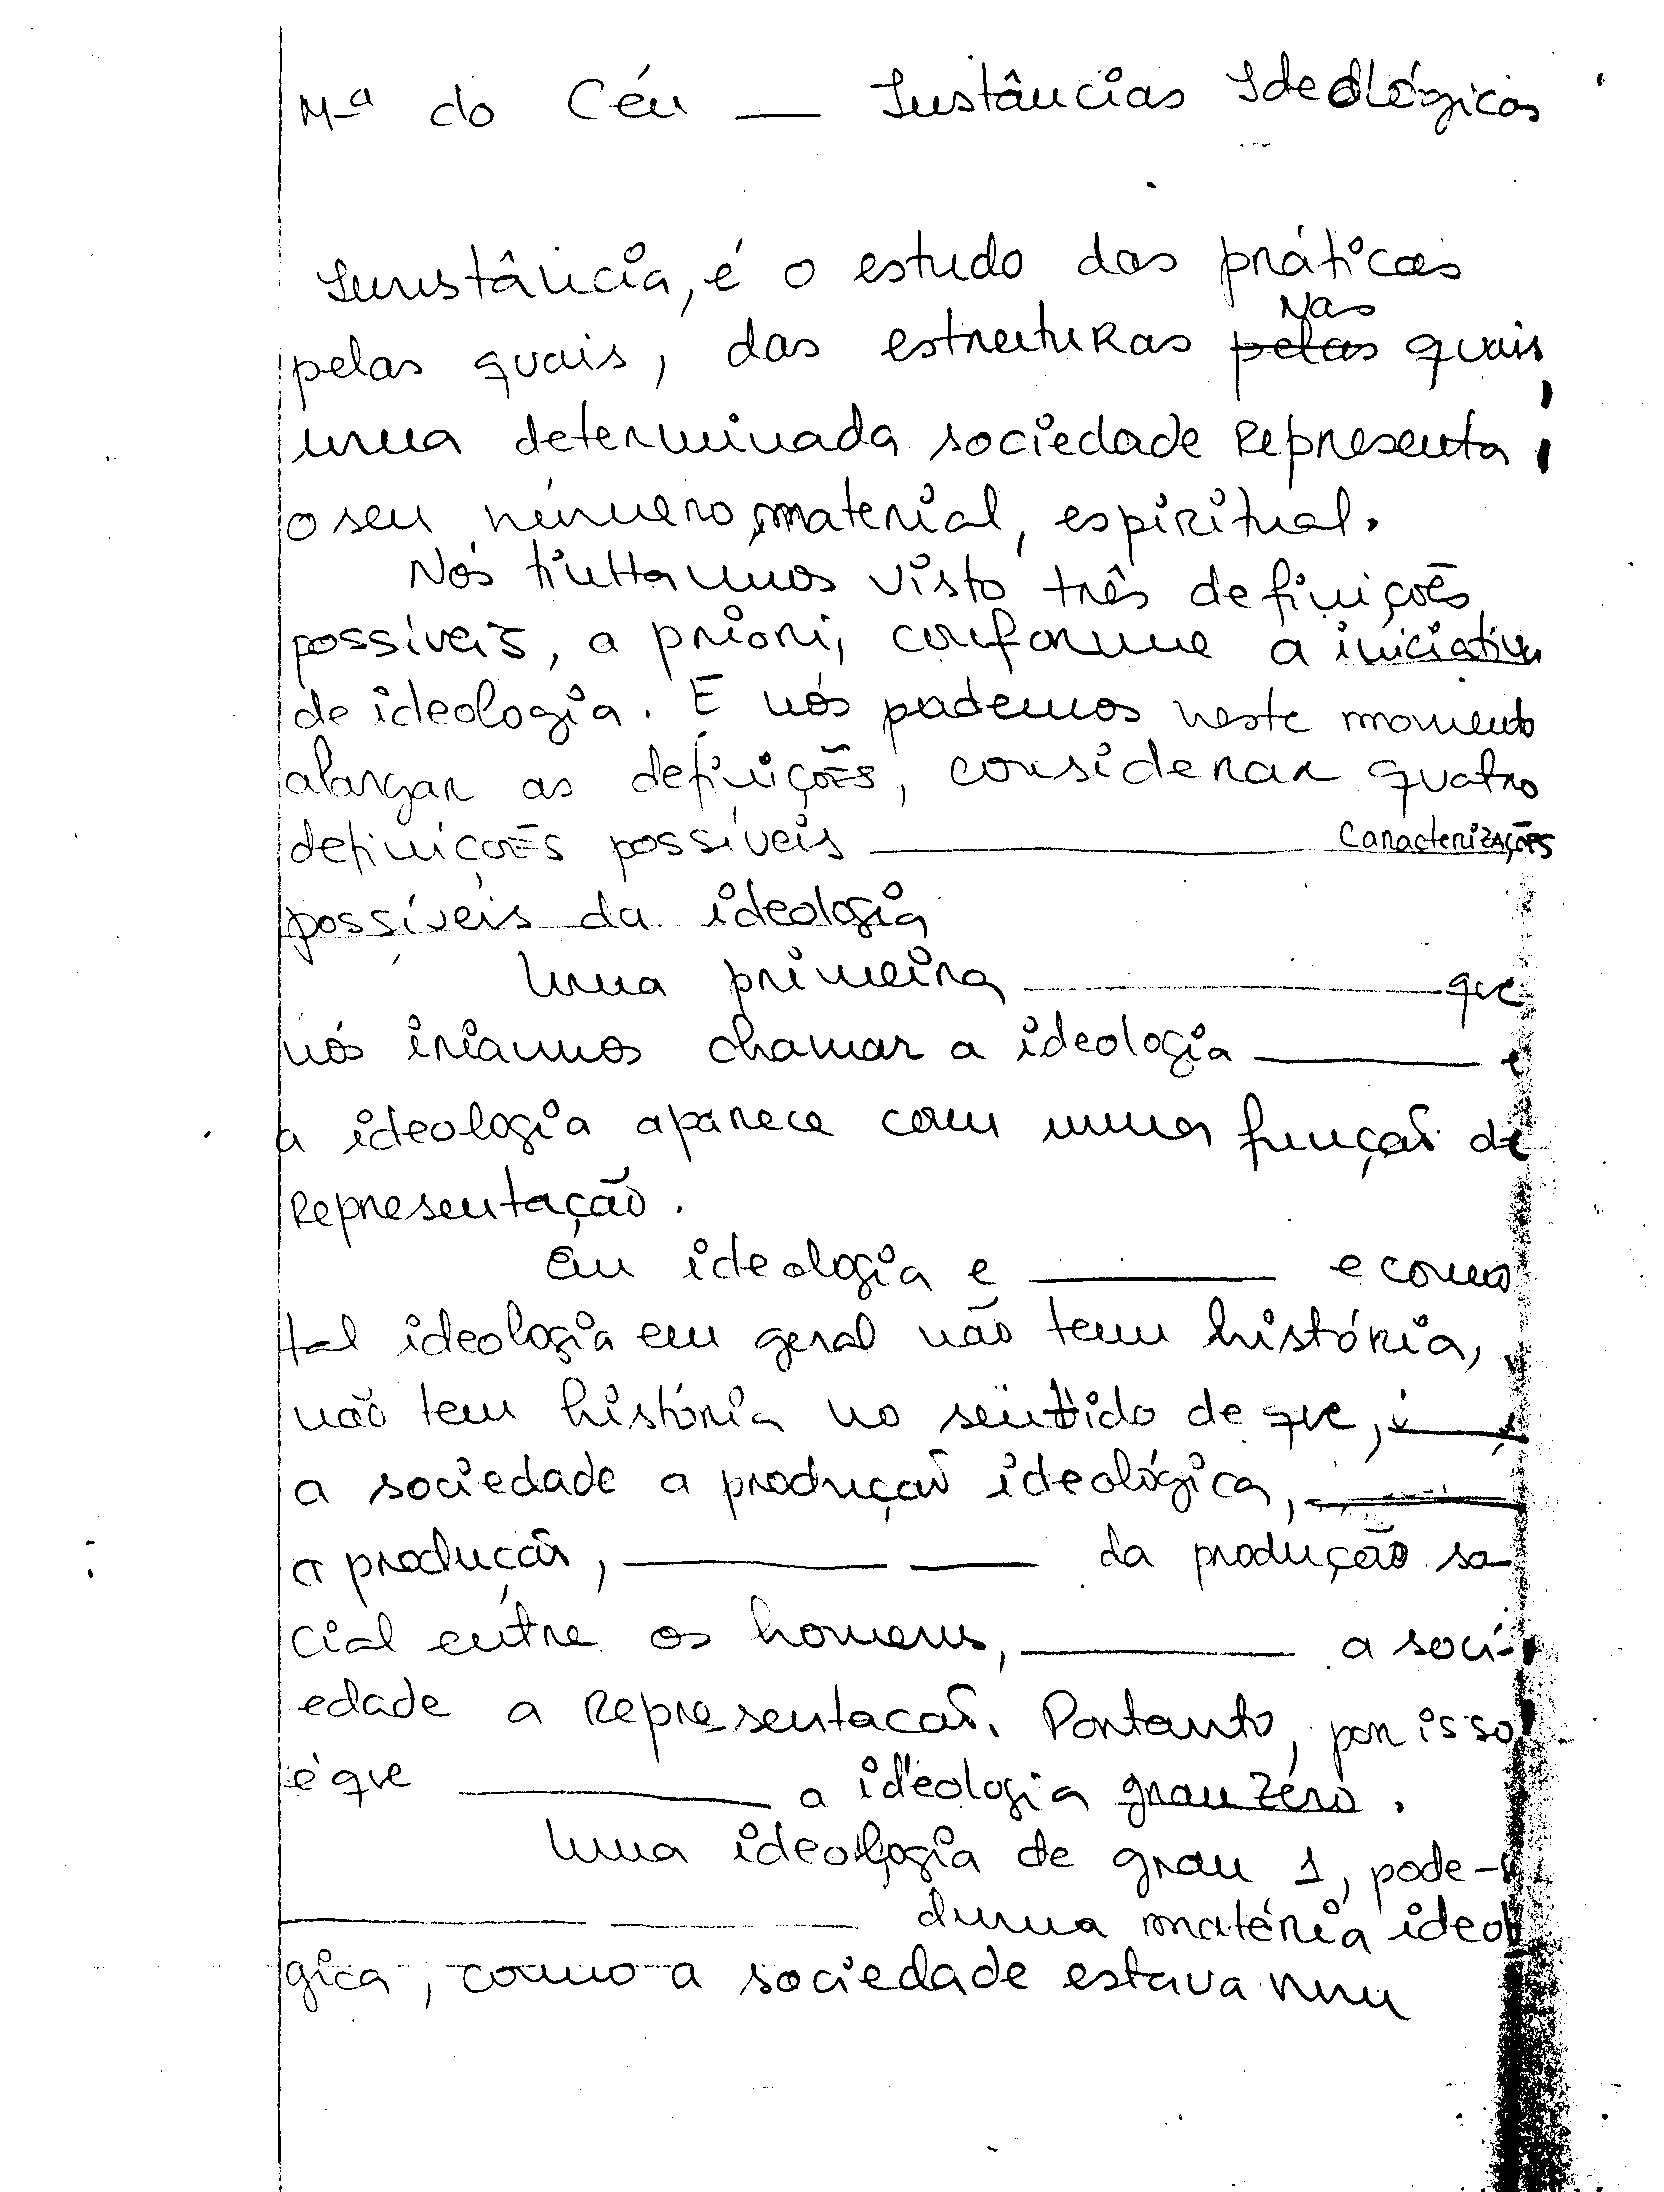 Mª do Céu — Instâncias Ideológicas
Instância, é o estudo das práticas
nas
pelas quais, das estruturas pelas quais,
uma determinada sociedade representa,
o seu número, material, espiritual.
Nós tinhamos visto três definições
possíveis, a priori, conforme a iniciativa
de ideologia. E nós podemos neste momento
alargar as definições, considerar quatro
definições possíveis ______ Caracterizações
possíveis da ideologia
Uma primeira ______ que
nós iríamos chamar a ideologia ______ e
a ideologia aparece com uma função de
representação.
Em ideologia e ______ e como
tal ideologia em geral não tem história,
não tem história no sentido de que, ______
a sociedade a produção ideológica, ______
a produção, ______ ______ da produção so-
cial entre os homens, ______ a soci-
edade a representação. Portanto, por isso
é que ______ a ideologia grau zero.
Uma ideologia de grau 1, pode-
______ ______ duma matéria ideoló
gica, como a sociedade estava num